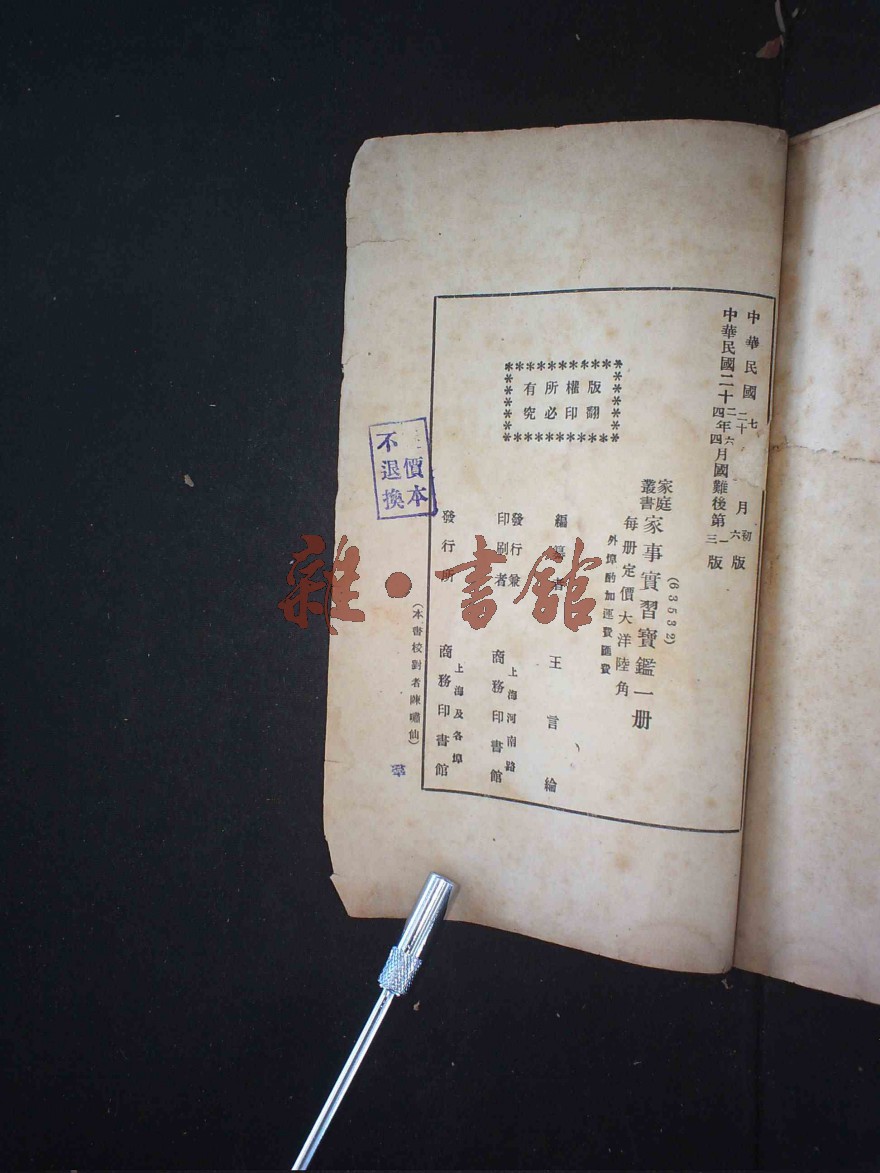 中華民國七年六月初版
中華民國二十二年一月國難後第一版
中華民國二十四年四月國難後第三版
(63532)
家庭叢書
家事實習寶鑑一册
每册定價大洋陸角
外埠酌加運費匯費
版權所有
翻印必究
編纂者 王言綸
發行兼印刷者
上海河南路
商務印書館
發行所
上海及各埠
商務印書館
(本書校對者陳嘯仙)
價本
不退換
雜·書館